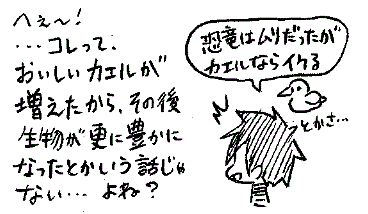 へぇ~!
…コレって、
おいしいカエルが
増えたから、その後
生物が更に豊かに
なったとかいう話じゃ
ない…よね?
恐竜はムリだったが
カエルならイケる
とかさ…